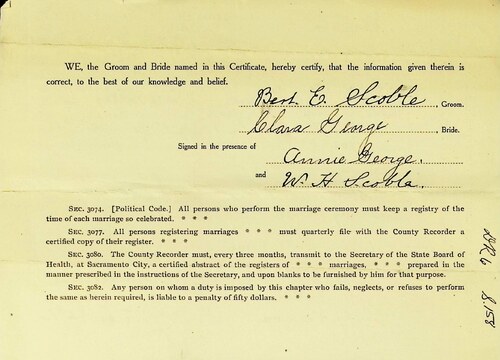 WE, the Groom and Bride named in this Certificate, hereby certify, that the information given therein is
correct, to the best of our knowledge and belief.
Bert E. Scoble, Groom.
Clara George, Bride.
Signed in the presence of
Annie George.
and W. H. Scoble.
SEC. 3074. [Political Code.] All persons who perform the marriage ceremony must keep a registry of the
time of each marriage so celebrated. * * *
SEC. 3077. All persons registering marriages * * * must quarterly file with the County Recorder a
certified copy of their register. * * *
SEC. 3080. The County Recorder must, every three months, transmit to the Secretary of the State Board of
Health, at Sacramento City, a certified abstract of the registers of * * * marriages, * * * prepared in the
manner prescribed in the instructions of the Secretary, and upon blanks to be furnished by him for that purpose.
SEC. 3082. Any person on whom a duty is imposed by this chapter who fails, neglects, or refuses to perform
the same as herein required, is liable to a penalty of fifty dollars. * * *